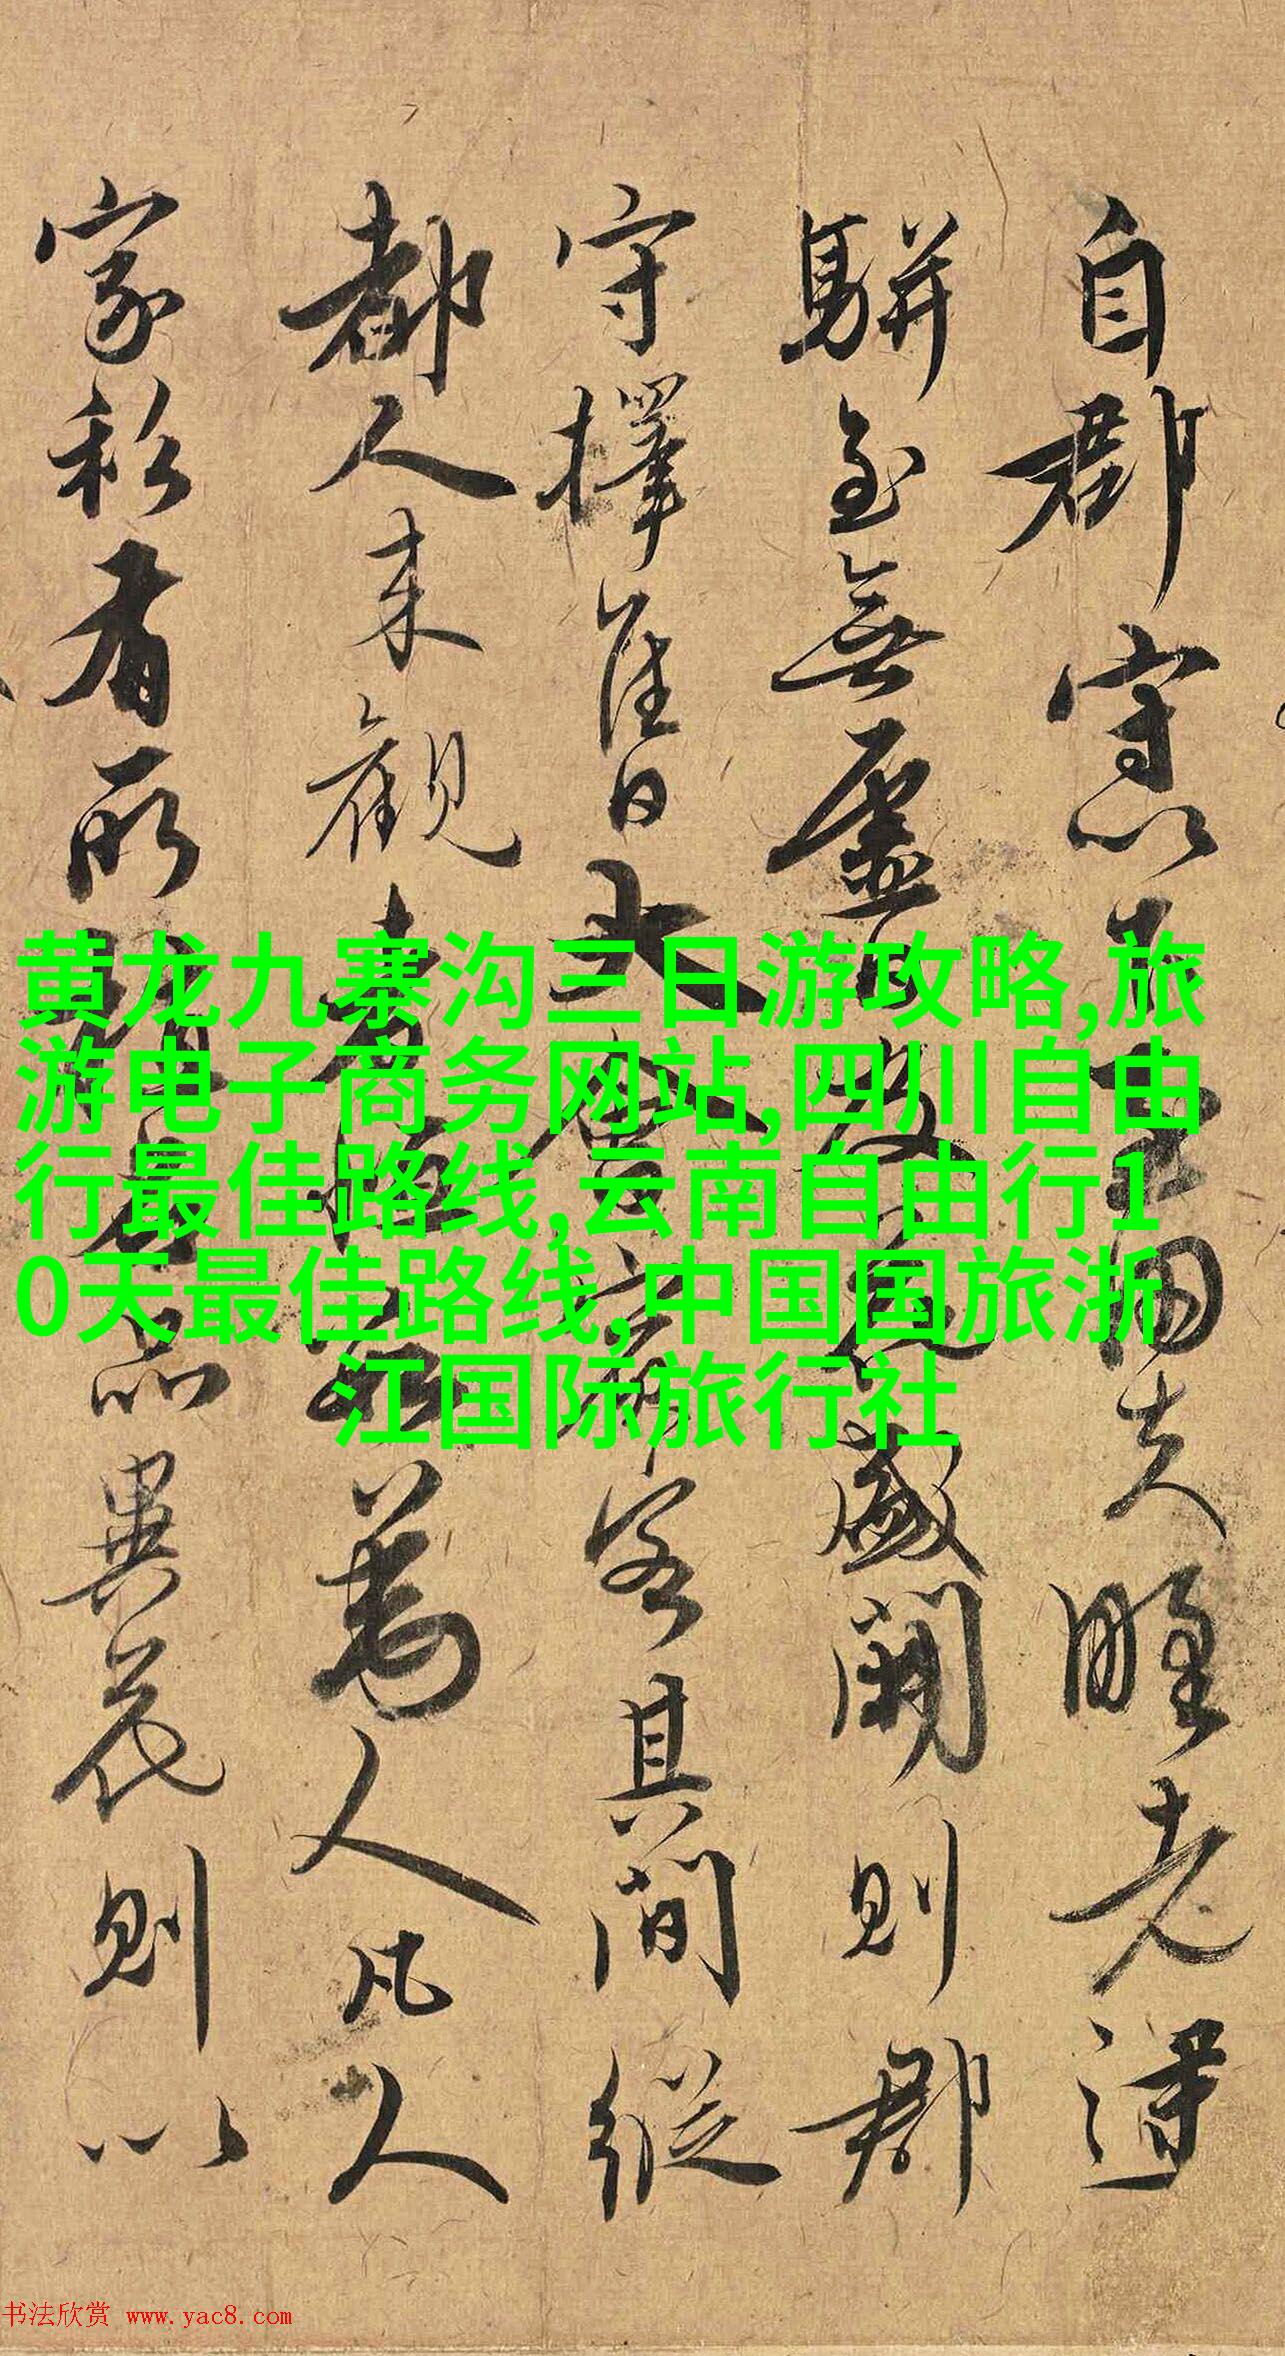 自郡守以
駢至無虛日及花盛開則郡
守擇佳日大會賓客其間縱
都人來觀者恒數萬人凡人
家私有所名品異花則以
黄龙九寨沟三日游攻略,旅
游电子商务网站,四川自由
行最佳路线,云南自由行1
0天最佳路线,中国国旅浙
江国际旅行社
书法欣赏 www.yac8.com